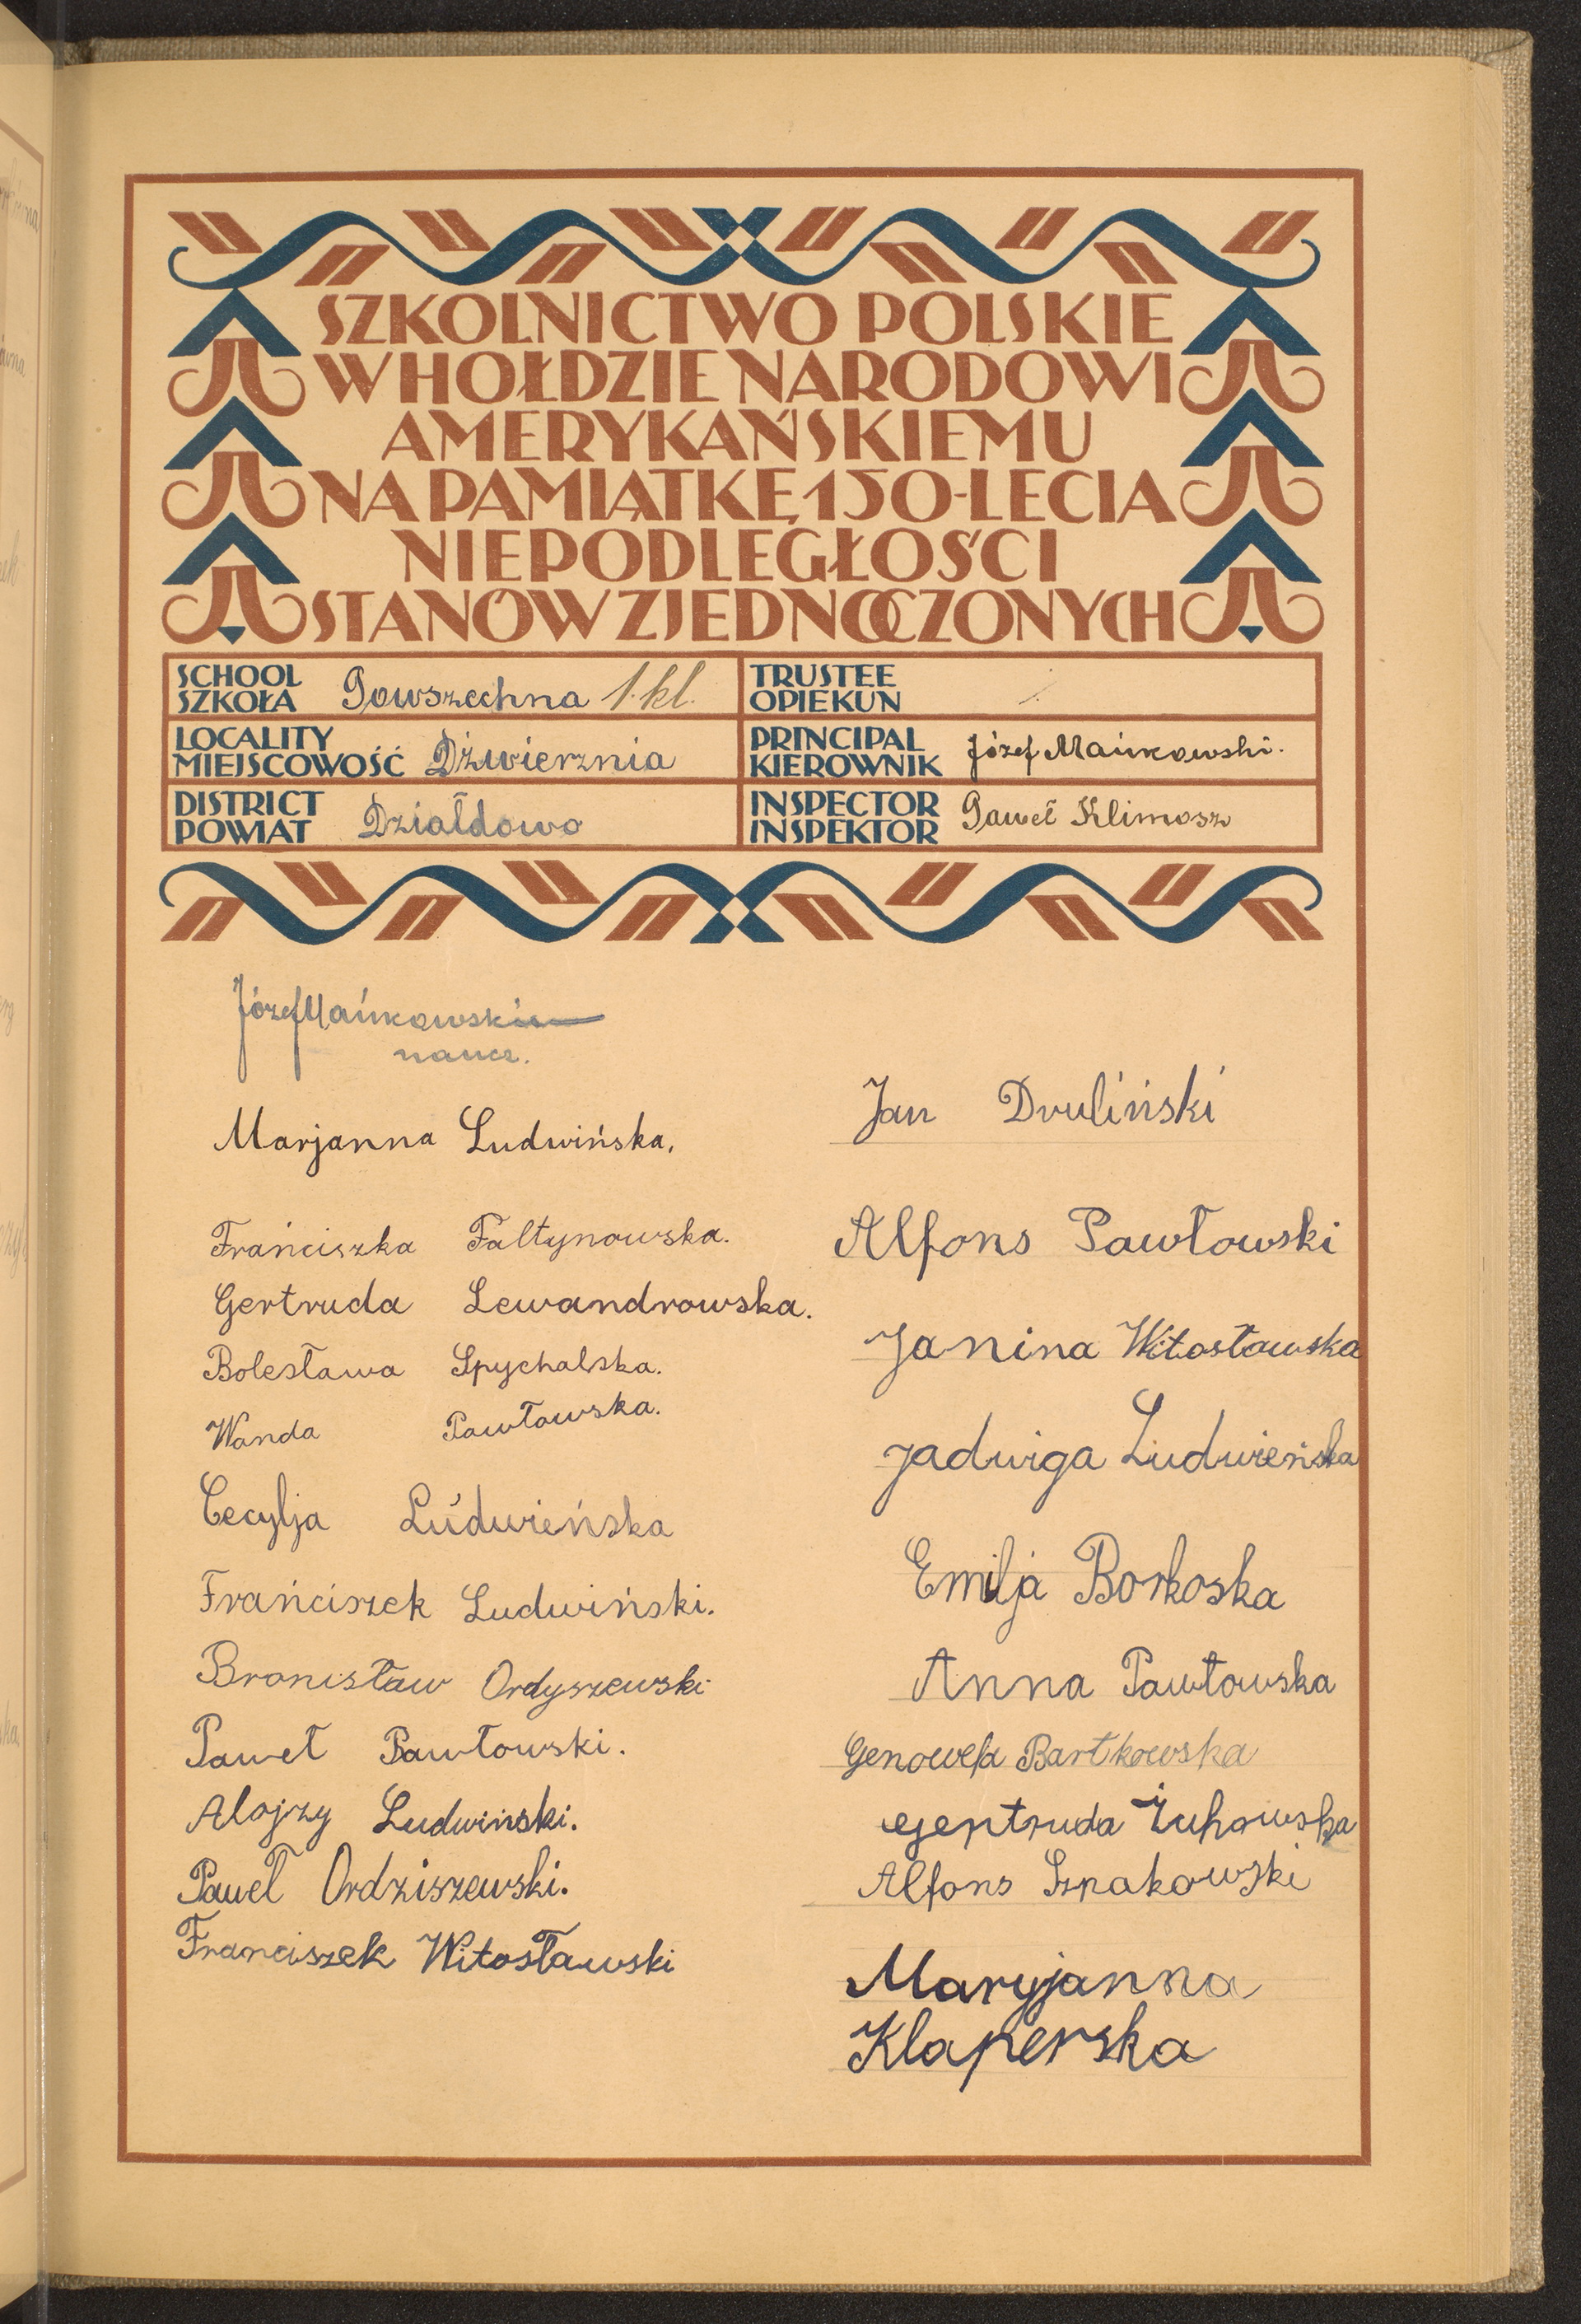 SZKOLNICTWO POLSKIE
W HOŁDZIE NARODOWI
AMERYKAŃSKIEMU
NA PAMIĄTKĘ 150-LECIA
NIEPODLEGŁOŚCI
STANÓW ZJEDNOCZONYCH
SCHOOL
SZKOŁA Powszechna 1. kl.
TRUSTEE
OPIEKUN
LOCALITY
MIEJSCOWOŚĆ Dźwierznia
PRINCIPAL
KIEROWNIK Józef Mańkowski.
DISTRICT
POWIAT Działdowo
INSPECTOR
INSPEKTOR Paweł Klimosz
Józef Mańkowski
naucz.
Marjanna Ludwińska.
Frańciszka Faltynowska.
Gertruda Lewandrowska.
Bolesława Spychalska.
Wanda Pawłowska.
Cecylja Lúdwieńska
Frańciszek Ludwiński.
Bronisław Ordyszewski
Paweł Pawłowski.
Alojzy Ludwiński.
Paweł Ordziszewski.
Franciszek Witosławski
Jan Druliński
Alfons Pawłowski
Janina Witosławska
Jadwiga Ludwieńska
Emilja Borkoska
Anna Pawłowska
Genowefa Bartkowska
Gertruda Żuhowska
Alfons Szpakowski
Maryjanna
Klaperska